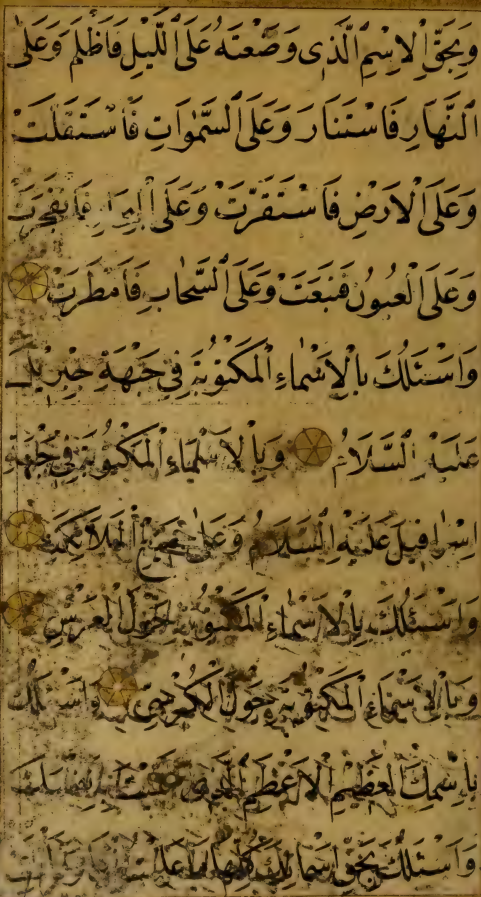 وَبِحَقِّ الْاِسْمِ الَّذِى وَضَعْتَهُ عَلَى الَّيْلِ فَاَظْلَمَ وَعَلَى
النَّهَارِ فَاسْتَنَارَ وَعَلَى السَّمٰوَاتِ فَاسْتَقَلَّتْ
وَعَلَى الْاَرْضِ فَاسْتَقَرَّتْ وَعَلَى الْبِحَارِ فَانْفَجَرَتْ
وَعَلَى الْعُيُونِ فَنَبَعَتْ وَعَلَى السَّحَابِ فَاَمْطَرَتْ
وَاَسْئَلُكَ بِالْاَسْمَاءِ الْمَكْتُوبَةِ فِى جَبْهَةِ جِبْرِيلَ
عَلَيْهِ السَّلَامُ وَبِالْاَسْمَاءِ الْمَكْتُوبَةِ فِى جَبْهَةِ
اِسْرَافِيلَ عَلَيْهِ السَّلَامُ وَعَلَى جَمِيعِ الْمَلَائِكَةِ
وَاَسْئَلُكَ بِالْاَسْمَاءِ الْمَكْتُوبَةِ حَوْلَ الْعَرْشِ
وَبِالْاَسْمَاءِ الْمَكْتُوبَةِ حَوْلَ الْكُرْسِىِّ وَاَسْئَلُكَ
بِاسْمِكَ الْعَظِيمِ الْاَعْظَمِ الَّذِى
وَاَسْئَلُكَ بِحَقِّ اَسْمَائِكَ كُلِّهَا مَا عَلِمْتُ